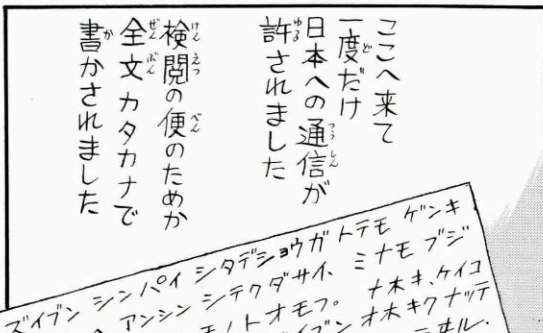 ここへ来て
一度だけ
日本への通信が
許されました
検閲の便のためか
全文カタカナで
書かされました
ズイブン シンパイ シタデショウガ トテモ ゲンキ
アンシン シテクダサイ、 ミナモ ブジ
モノトオモフ。 ナホキ、ケイコ
ズイブン オホキクナッテ
ヰル、